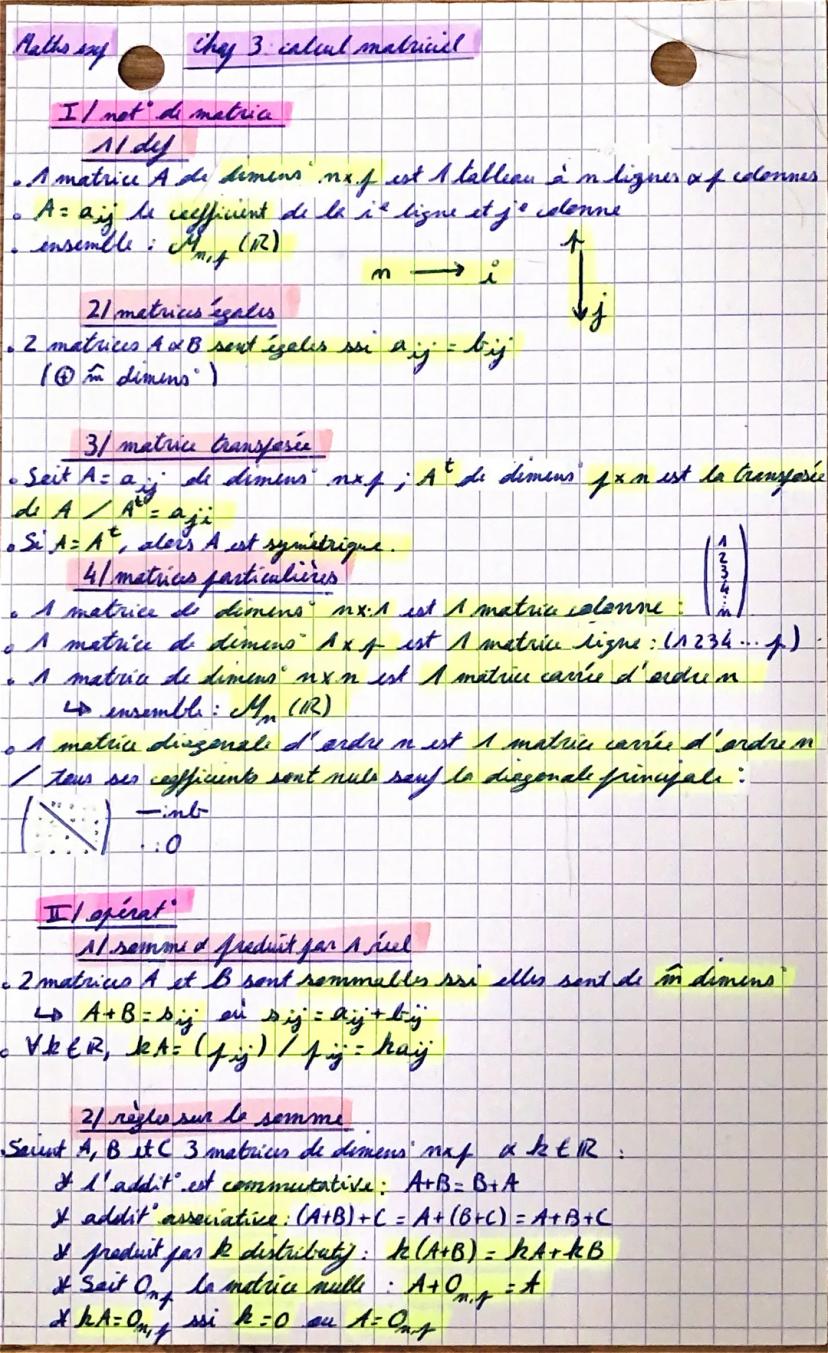 Maths exp Chap 3: calcul matriciel
I/ not° de matrice
1/ def
• 1 matrice A de dimens° n×p est 1 tableau à n lignes & p colonnes
• A = aij le coefficient de la iᵉ ligne et jᵉ colonne
• ensemble : Mn,p (ℝ)
n → i
p ↓ j
2/ matrices égales
• 2 matrices A & B sont égales ssi aij = bij
(⊕ m̂ dimens°)
3/ matrice transposée
• Soit A = aij de dimens° n×p ; Aᵗ de dimens° p×n est la transposée
de A / Aᵗ = aji
• Si A = Aᵗ, alors A est symétrique.
4/ matrices particulières
• 1 matrice de dimens° n×1 est 1 matrice colonne : (1 2 3 4 ⋮ n)
• 1 matrice de dimens° 1×p est 1 matrice ligne : (1 2 3 4 ... p)
• 1 matrice de dimens° n×n est 1 matrice carrée d'ordre n
↳ ensemble : Mn (ℝ)
• 1 matrice diagonale d'ordre n est 1 matrice carrée d'ordre n
/ tous ses coefficients sont nuls sauf la diagonale principale :
— : nb
· : 0
II/ opérat°
1/ somme & produit par 1 réel
• 2 matrices A et B sont sommables ssi elles sont de m̂ dimens°
↳ A+B = sij où sij = aij + bij
• ∀k ∈ ℝ, kA = (pij) / pij = kaij
2/ règles sur la somme
• Soient A, B et C 3 matrices de dimens° n×p & k ∈ ℝ :
* l'addit° est commutative : A+B = B+A
* addit° associative : (A+B)+C = A+(B+C) = A+B+C
* produit par k distributif : k(A+B) = kA+kB
* Soit On,p la matrice nulle : A+On,p = A
* kA = On,p ssi k = 0 ou A = On,p